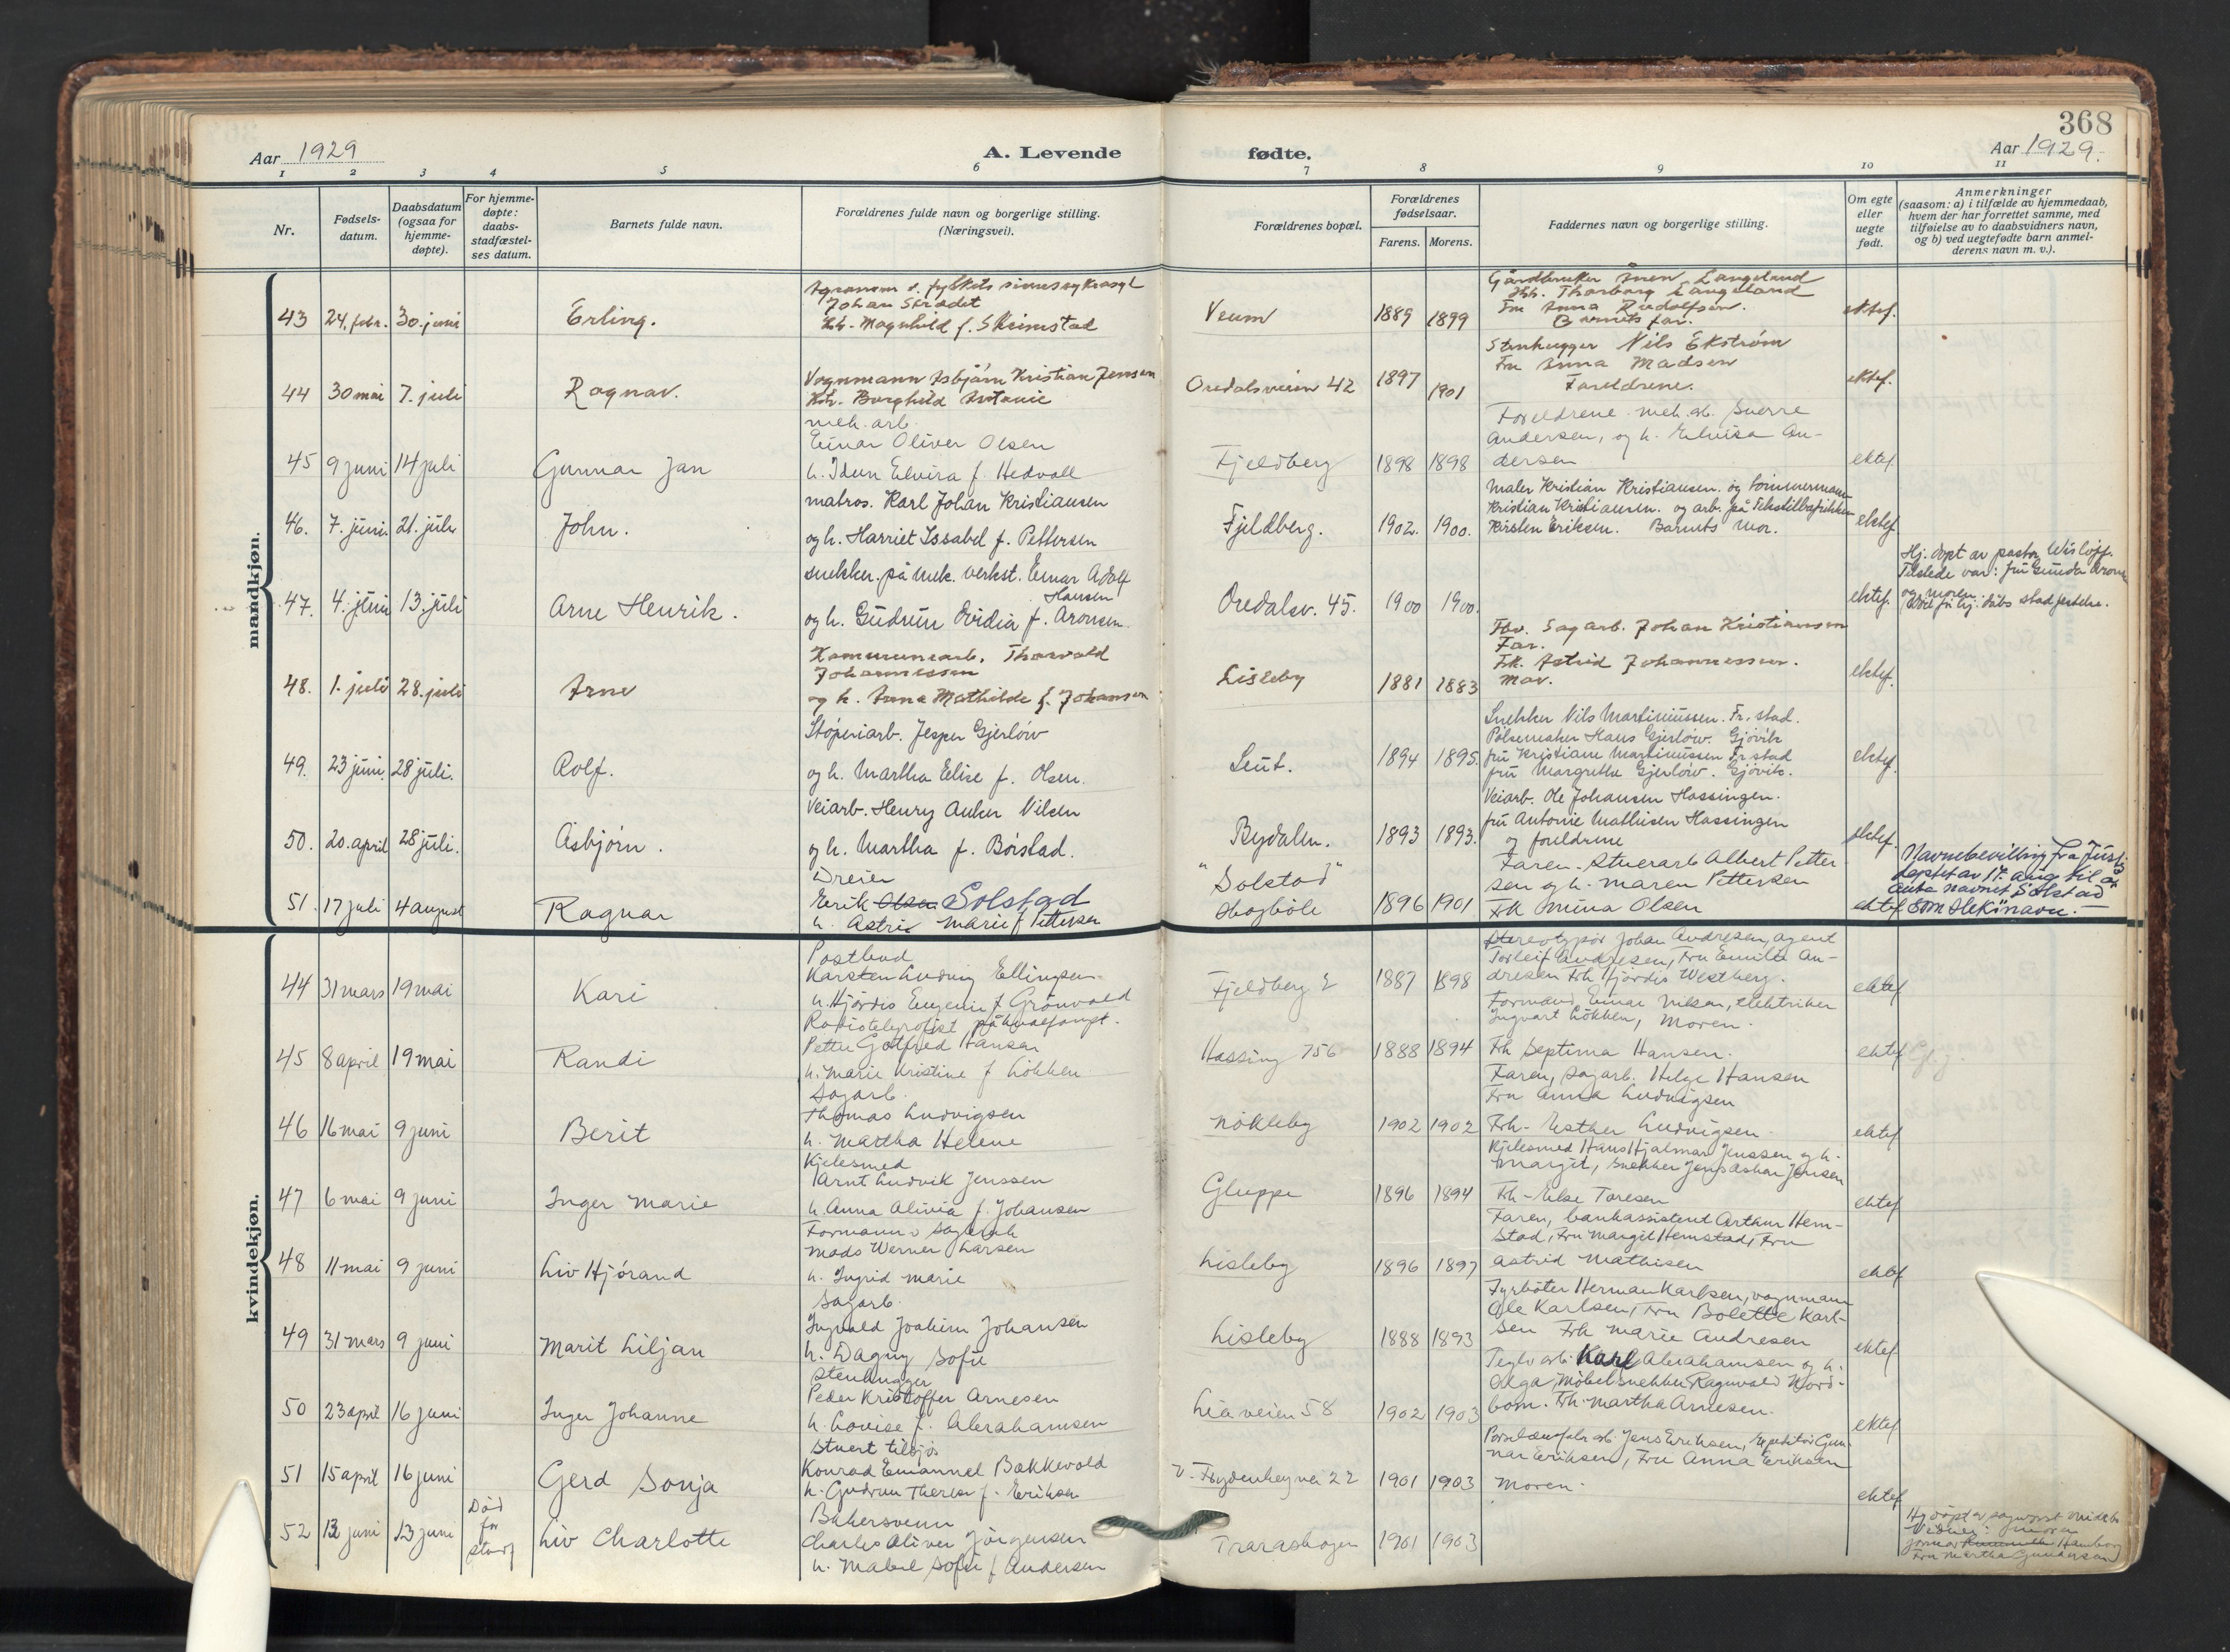 368
Aar 1929
A. Levende
fødte.
Aar 1929.
1 2 3 4 5 6 7 8 9 10 11
Nr.
Fødsels-
datum.
Daabsdatum
(ogsaa for
hjemme-
døpte).
For hjemme-
døpte:
daabs-
stadfæstel-
ses datum.
Barnets fulde navn.
Forældrenes fulde navn og borgerlige stilling.
(Næringsvei).
Forældrenes bopæl.
Forældrenes
fødselsaar.
Farens. Morens.
Faddernes navn og borgerlige stilling.
Om egte
eller
uegte
født.
Anmerkninger
(saasom: a) i tilfælde av hjemmedaab,
hvem der har forrettet samme, med
tilføielse av to daabsvidners navn,
og b) ved uegtefødte barn anmel-
derens navn m. v.).
mandkjøn.
43 24. febr. 30. juni Erling.
Agronom v. fylkets sinnssykeasyl
Johan
Magnhild f. Skimstad
Veum 1889 1899
Gårdbruker Langeland
Thorborg Langeland
Fru Anna Rudolfsen.
Barnets far.
ektef.
44 30 mai 7. juli Ragnar.
Vognmann Asbjørn Kristian Jensen
Borghild Antonie
Oredalsveien 42 1897 1901
Stenhugger Nils Ekstrøm
Fru Anna Madsen
Foreldrene.
ektef.
45 9 juni 14 juli Gunnar Jan
mek. arb.
Einar Oliver Olsen
h. Idun Elvira f. Hedvall
Fjeldberg 1898 1898
Foreldrene. mek. arb. Sverre
Andersen, og h. Elvira An-
dersen
ektef.
46. 7. juni 21. juli John.
matros. Karl Johan Kristiansen
og h. Harriet Issabel f. Pettersen
Fjeldberg. 1902. 1900.
Maler Kristian Kristiansen. og tømmermann
Kristian Kristiansen. og arb. på Tekstilfabrikken
Kirsten Eriksen. Barnets mor.
ektef.
47. 4. juni 13. juli Arne Henrik.
snekker. på mek. verkst. Einar Adolf
Hansen
og h. Gudrun Ovidia f. Aronsen.
Oredalsv. 45. 1900 1900.
ektef.
Hj. døpt av pastor Wisløff.
Tilstede var: fru Gunda
og moren.
48. 1. juli 28. juli Arne
Kommunearb. Thorvald
Johannessen
og h. Anna Mathilde f. Johansen
Lisleby 1881 1883
Fbv. Sagarb. Johan Kristiansen
Far.
Frk. Astrid Johannessen.
Mor.
ektef.
49. 23 juni. 28 juli. Rolf.
Støperiarb. Jesper Gjerløw
og h. Martha Elise f. Olsen.
Leut. 1894 1895.
Snekker Nils Martiniussen. Fr. stad.
Pølsemaker Hans Gjerløw. Gjøvik
fru Kristiane Martiniussen Fr. stad
fru Margrethe Gjerløw. Gjøvik.
ektef.
50. 20. april 28 juli. Asbjørn.
Veiarb. Henry Anker Nilsen
og h. Martha f. Børstad.
Rydalen. 1893 1893.
Veiarb. Ole Johansen Hassingen.
fru Antonie Mathisen Hassingen
og foreldrene
ektef.
51. 17 juli 4 august Ragnar
Dreier
Erik Olsen Solstad
h. Astrid Marie f Pettersen
"Solstad"
1896 1901
Faren. Stuerarb Albert Petter-
sen og h. Maren Pettersen
Frk Mina Olsen
ektef
Navnebevilling fra Just.
deptet av 17. aug til å
anta navnet Solstad
som slektsnavn.
kvindekjøn.
44 31 mars 19 mai Kari
Postbud
Karsten Ludvig Ellingsen
h. Hjørdis Eugenie f Grönvold
Fjeldberg 2 1887 1898
Stereotypør Johan Andresen, agent
Torleif Andresen, Fru Emilie An-
dresen Frk Hjördis Westberg.
ektef
45 8 april 19 mai Randi
Radiotelegrafist på hvalfangst.
Petter Gotfred Hansen
h. Marie Kristine f Lökken
Hassing 756 1888 1894
Formand Einar Nilsen, elektriker
Ingvart Lökken, Moren.
Frk Septima Hansen.
ektef
46 16 mai 9 juni Berit
Sagarb.
Thomas Ludvigsen
h. Martha Helene
Nökleby 1902 1902
Faren, sagarb. Helge Hansen
Fru Anna Ludvigsen
Frk- Esther Ludvigsen
ektef
47 6 mai 9 juni Inger Marie
Kjelesmed
Arnt Ludvik Jenssen
h. Anna Alivia f. Johansen
Gluppe 1896 1894
Kjelesmed Hans Hjalmar Jenssen og h.
Margit, snekker Jens Oskar Jensen
Frk- Else Toresen
ektef
48 11 mai 9 juni Liv Hjörand
Formann v sagbruk
Mads Werner Larsen
h. Ingrid Marie
Lisleby 1896 1897
Faren, bankassistent Arthur Hem-
stad, Fru Margit Hemstad, Fru
Astrid Mathisen
ektef
49 31 mars 9 juni Marit Liljan
Sagarb.
Ingvald Joakim Johansen
h. Dagny Sofie
Lisleby 1888 1893
Fyrböter Herman Karlsen, vognmann
Ole Karlsen, Fru Bolette Karl-
sen Frk Marie Andresen
ektef
50 23 april 16 juni Inger Johanne
Stenhugger
Peder Kristoffer Arnesen
h. Lovise f. Abrahamsen
Liaveien 58 1902 1903
Teglv arb. Karl Abrahamsen og h.
Olga, Möbelsnekker Ragnvald Nord-
bom. Frk. Martha Arnesen.
ektef
51 15 april 16 juni Gerd Sonja
Stuert tilsjøs
Konrad Emanuel Bakkevold
h. Gudrun Therese f. Eriksen
1901 1903
Porselensfabr arb Jens Eriksen, repetitör Gun-
nar Eriksen, Fru Anna Eriksen
Moren.
ektef
52 12 juni 13 juni
Död
för
stadf
Liv Charlotte
Bakersvenn
Charles Oliver Jörgensen
h. Mabel Sofie f Andersen
Traraskogen 1901 1903
Vidner: moren
Fru Martha Gundersen